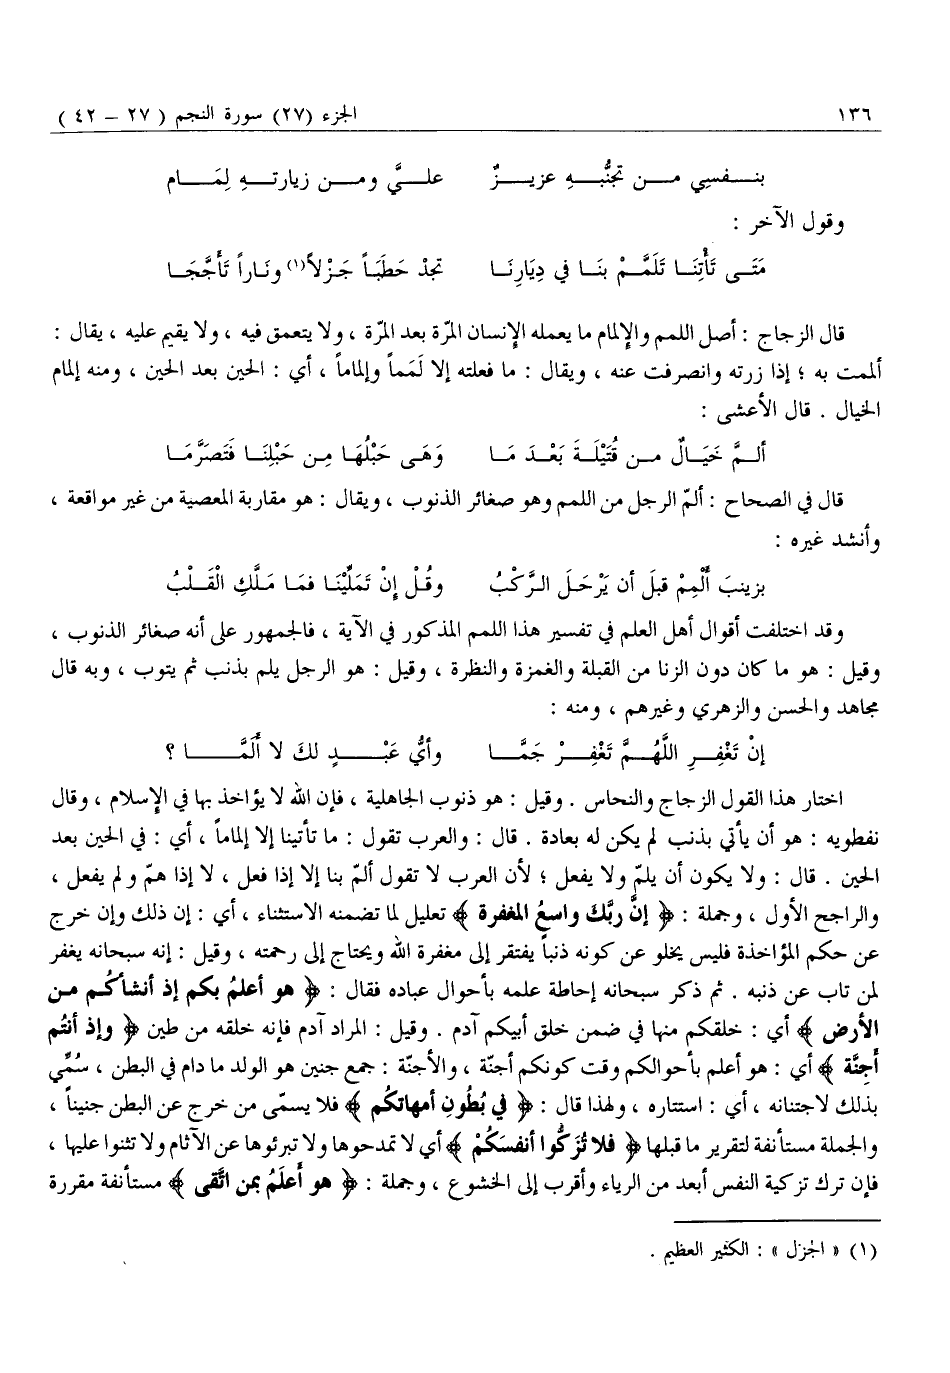 ١٣٦ الجزء (٢٧) سورة النجم ( ٢٧ – ٤٢ )
بنــفسِي مــن تجنُّبــهِ عزيــزٌ علــيَّ ومــن زيارتــهِ لِمَــام
وقول الآخر :
مَتَــى تَأْتِنَــا تَلَمَّــمْ بنَــا في دِيَارِنَــا تجدْ حَطَبَـاً جَـزْلاً(١) ونَـاراً تَأَجَّجَـا
قال الزجاج : أصل اللمم والإلمام ما يعمله الإنسان المرّة بعد المرّة ، ولا يتعمق فيه ، ولا يقيم عليه ، يقال :
ألممت به ؛ إذا زرته وانصرفت عنه ، ويقال : ما فعلته إلا لَمَماً وإلماماً ، أي : الحين بعد الحين ، ومنه إلمام
الخيال . قال الأعشى :
ألــمَّ خَيَــالٌ مــن قُتَيْلَــةَ بَعْــدَ مَـا وَهَـى حَبْلُهَـا مِـن حَبْلِنَـا فَتَصَرَّمَـا
قال في الصحاح : ألمّ الرجل من اللمم وهو صغائر الذنوب ، ويقال : هو مقاربة المعصية من غير مواقعة ،
وأنشد غيره :
بزينبَ أَلْمِمْ قبلَ أن يَرْحَـلَ الـرَّكْبُ وقُـلْ إِنْ تَمَلِّيْنَـا فمَـا مَلَّـكِ الْقَـلْبُ
وقد اختلفت أقوال أهل العلم في تفسير هذا اللمم المذكور في الآية ، فالجمهور على أنه صغائر الذنوب ،
وقيل : هو ما كان دون الزنا من القبلة والغمزة والنظرة ، وقيل : هو الرجل يلم بذنب ثم يتوب ، وبه قال
مجاهد والحسن والزهري وغيرهم ، ومنه :
إنْ تَغْفِـرِ اللَّهُــمَّ تَغْفِــرْ جَمَّــا وأيُّ عَبْـــدٍ لكَ لا أَلَمَّـــا ؟
اختار هذا القول الزجاج والنحاس . وقيل : هو ذنوب الجاهلية ، فإن الله لا يؤاخذ بها في الإسلام ، وقال
نفطويه : هو أن يأتي بذنب لم يكن له بعادة . قال : والعرب تقول : ما تأتينا إلا إلماماً ، أي : في الحين بعد
الحين . قال : ولا يكون أن يلمّ ولا يفعل ؛ لأن العرب لا تقول ألمّ بنا إلا إذا فعل ، لا إذا همّ ولم يفعل ،
والراجح الأول ، وجملة : ﴿ إنَّ ربَّكَ واسعُ المغفرة ﴾ تعليل لما تضمنه الاستثناء ، أي : إن ذلك وإن خرج
عن حكم المؤاخذة فليس يخلو عن كونه ذنباً يفتقر إلى مغفرة الله ويحتاج إلى رحمته ، وقيل : إنه سبحانه يغفر
لمن تاب عن ذنبه . ثم ذكر سبحانه إحاطة علمه بأحوال عباده فقال : ﴿ هو أعلمُ بكم إذ أنشأكُــم مـن
الأرض ﴾ أي : خلقكم منها في ضمن خلق أبيكم آدم . وقيل : المراد آدم فإنه خلقه من طين ﴿ وإذ أنتُم
أَجِنَّة ﴾ أي : هو أعلم بأحوالكم وقت كونكم أجنّة ، والأجنّة : جمع جنين هو الولد ما دام في البطن ، سُمِّي
بذلك لاجتنانه ، أي : استتاره ، ولهذا قال : ﴿ في بُطُونِ أمهاتكُم ﴾ فلا يسمّى من خرج عن البطن جنيناً ،
والجملة مستأنفة لتقرير ما قبلها ﴿ فلا تُزَكُّوا أنفسَكُمْ ﴾ أي لا تمدحوها ولا تبرئوها عن الآثام ولا تثنوا عليها ،
فإن ترك تزكية النفس أبعد من الرياء وأقرب إلى الخشوع ، وجملة : ﴿ هو أَعلَمُ بمن اتَّقى ﴾ مستأنفة مقررة
(١) « الجزل » : الكثير العظيم .